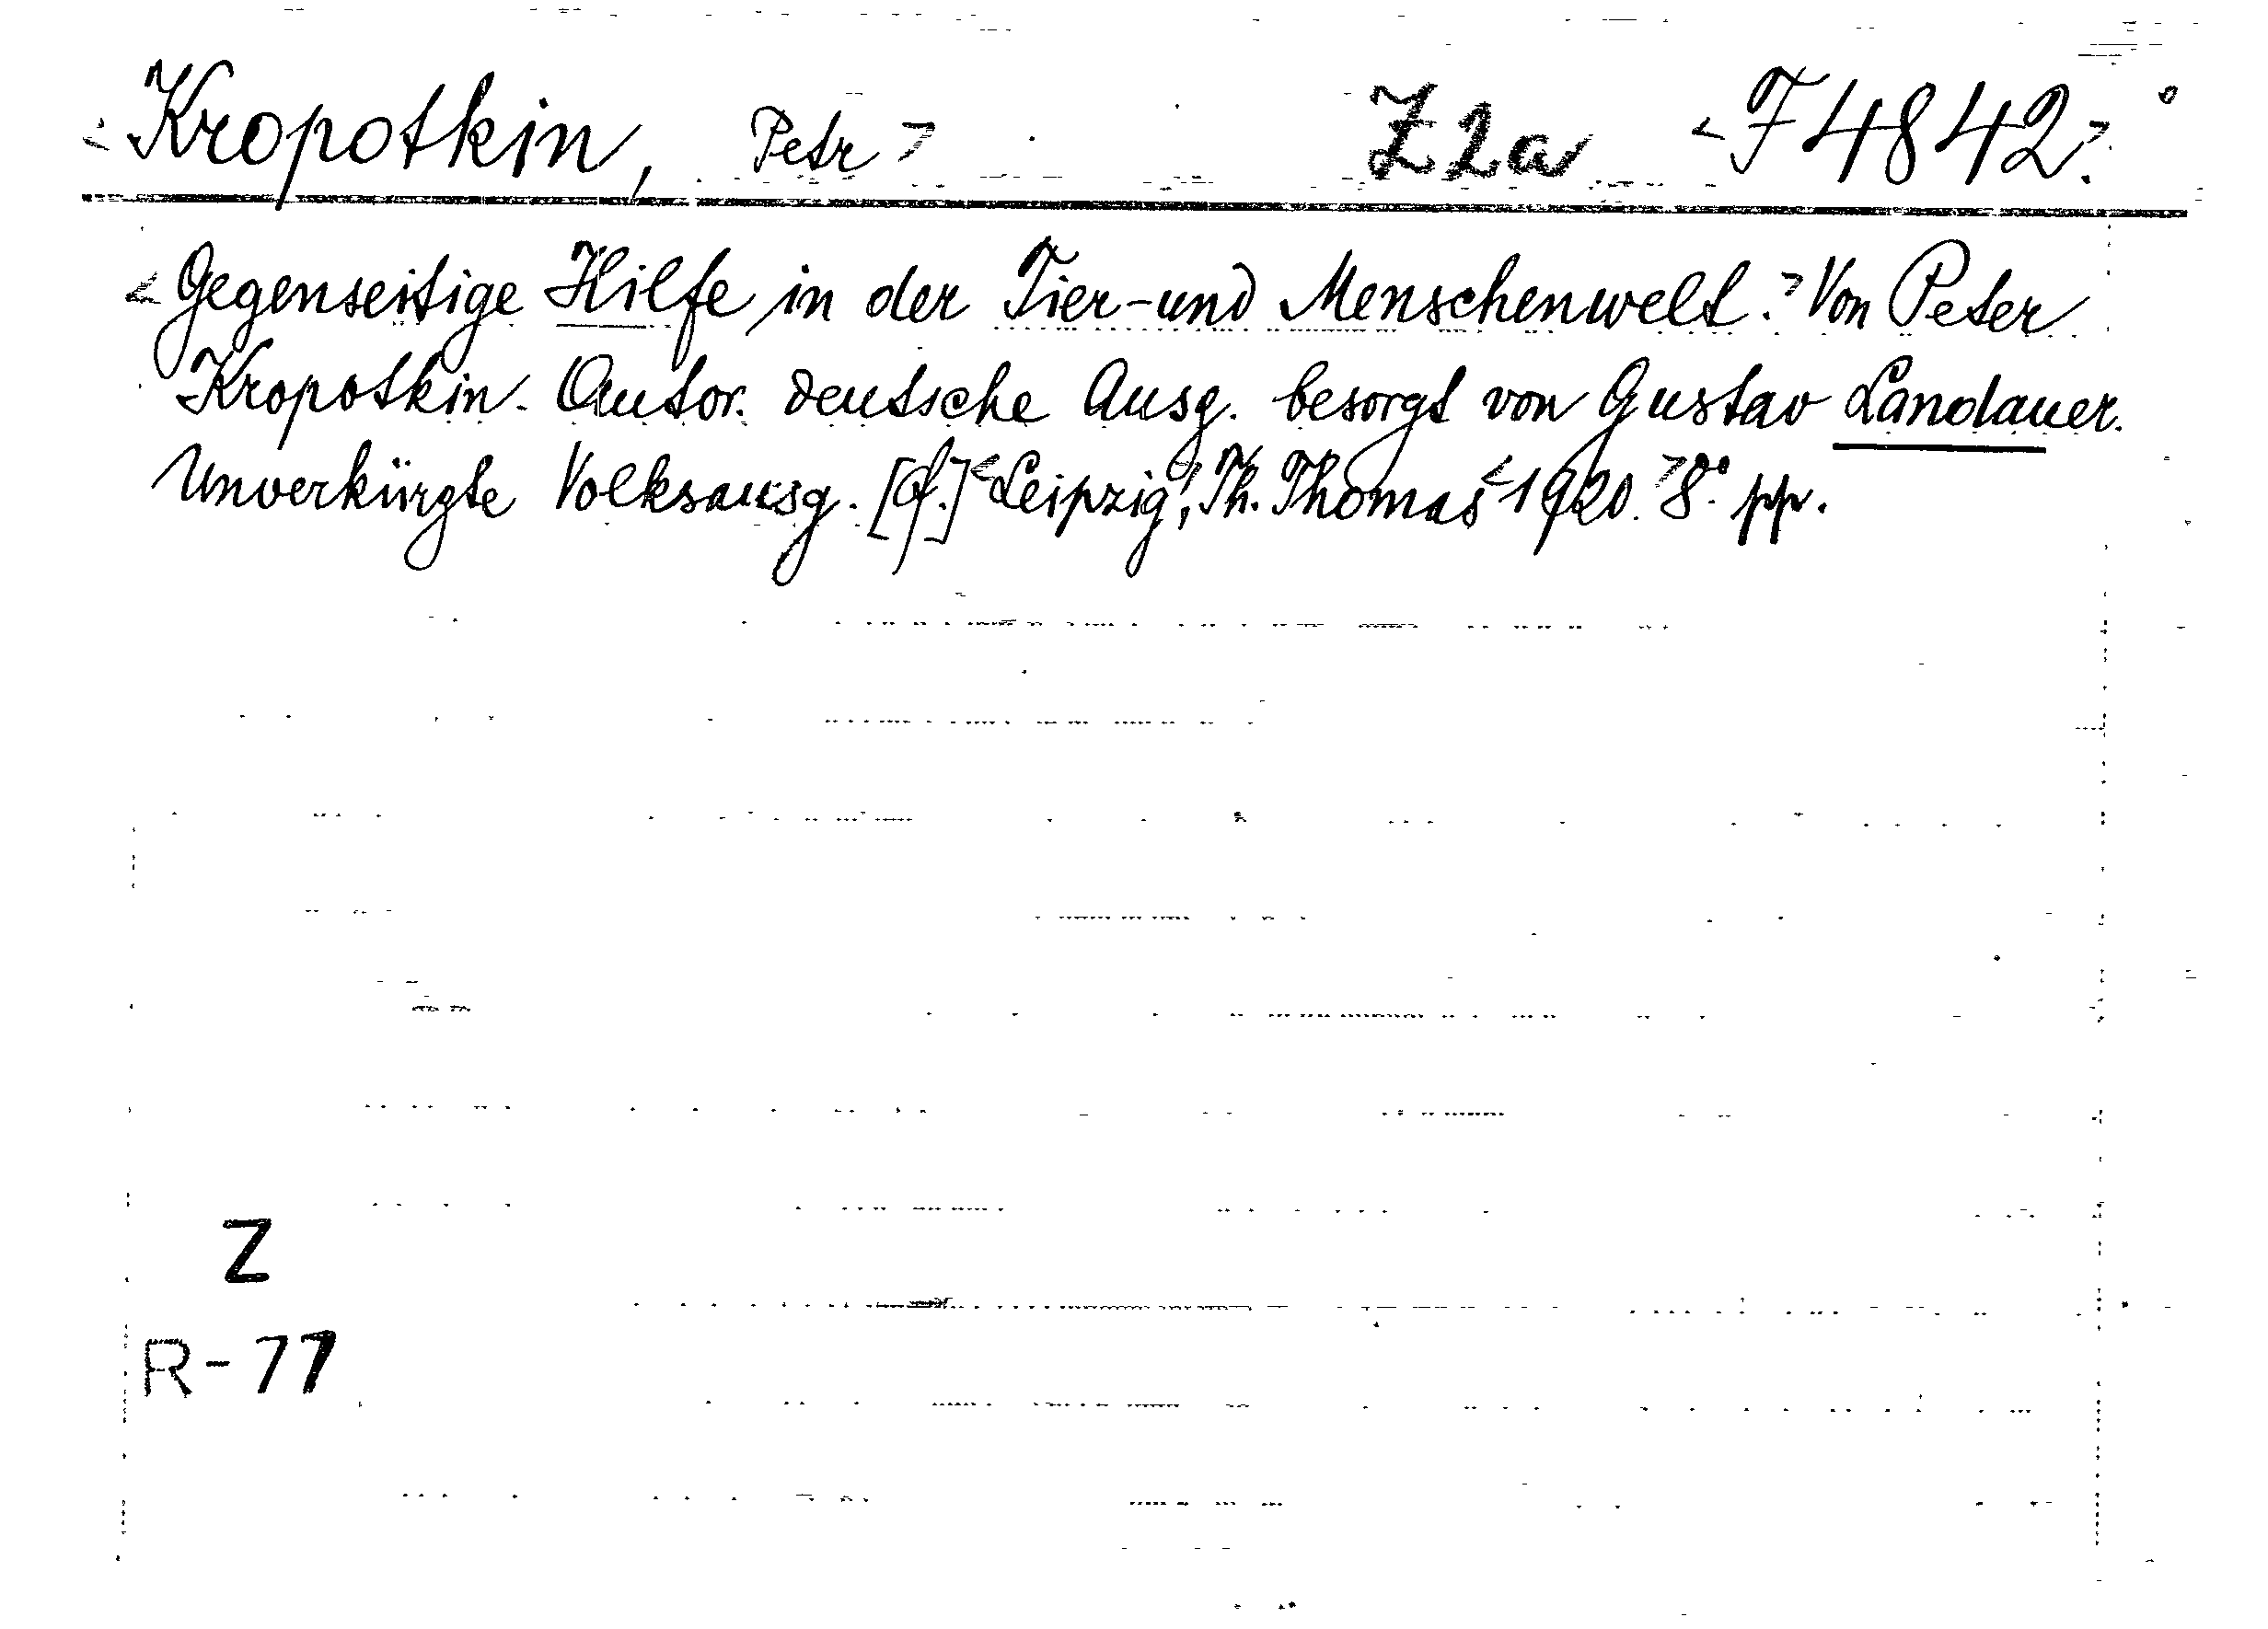 < Kropotkin, Petr > Z2a < F 4842. >
< Gegenseitige Hilfe in der Tier- und Menschenwelt. > Von Peter
Kropotkin. Autor. deutsche Ausg. besorgt von Gustav Landauer.
Unverkürzte Volksausg. < Leipzig, > Th. Thomas < 1920. > 8°. pp.
Z
R-77